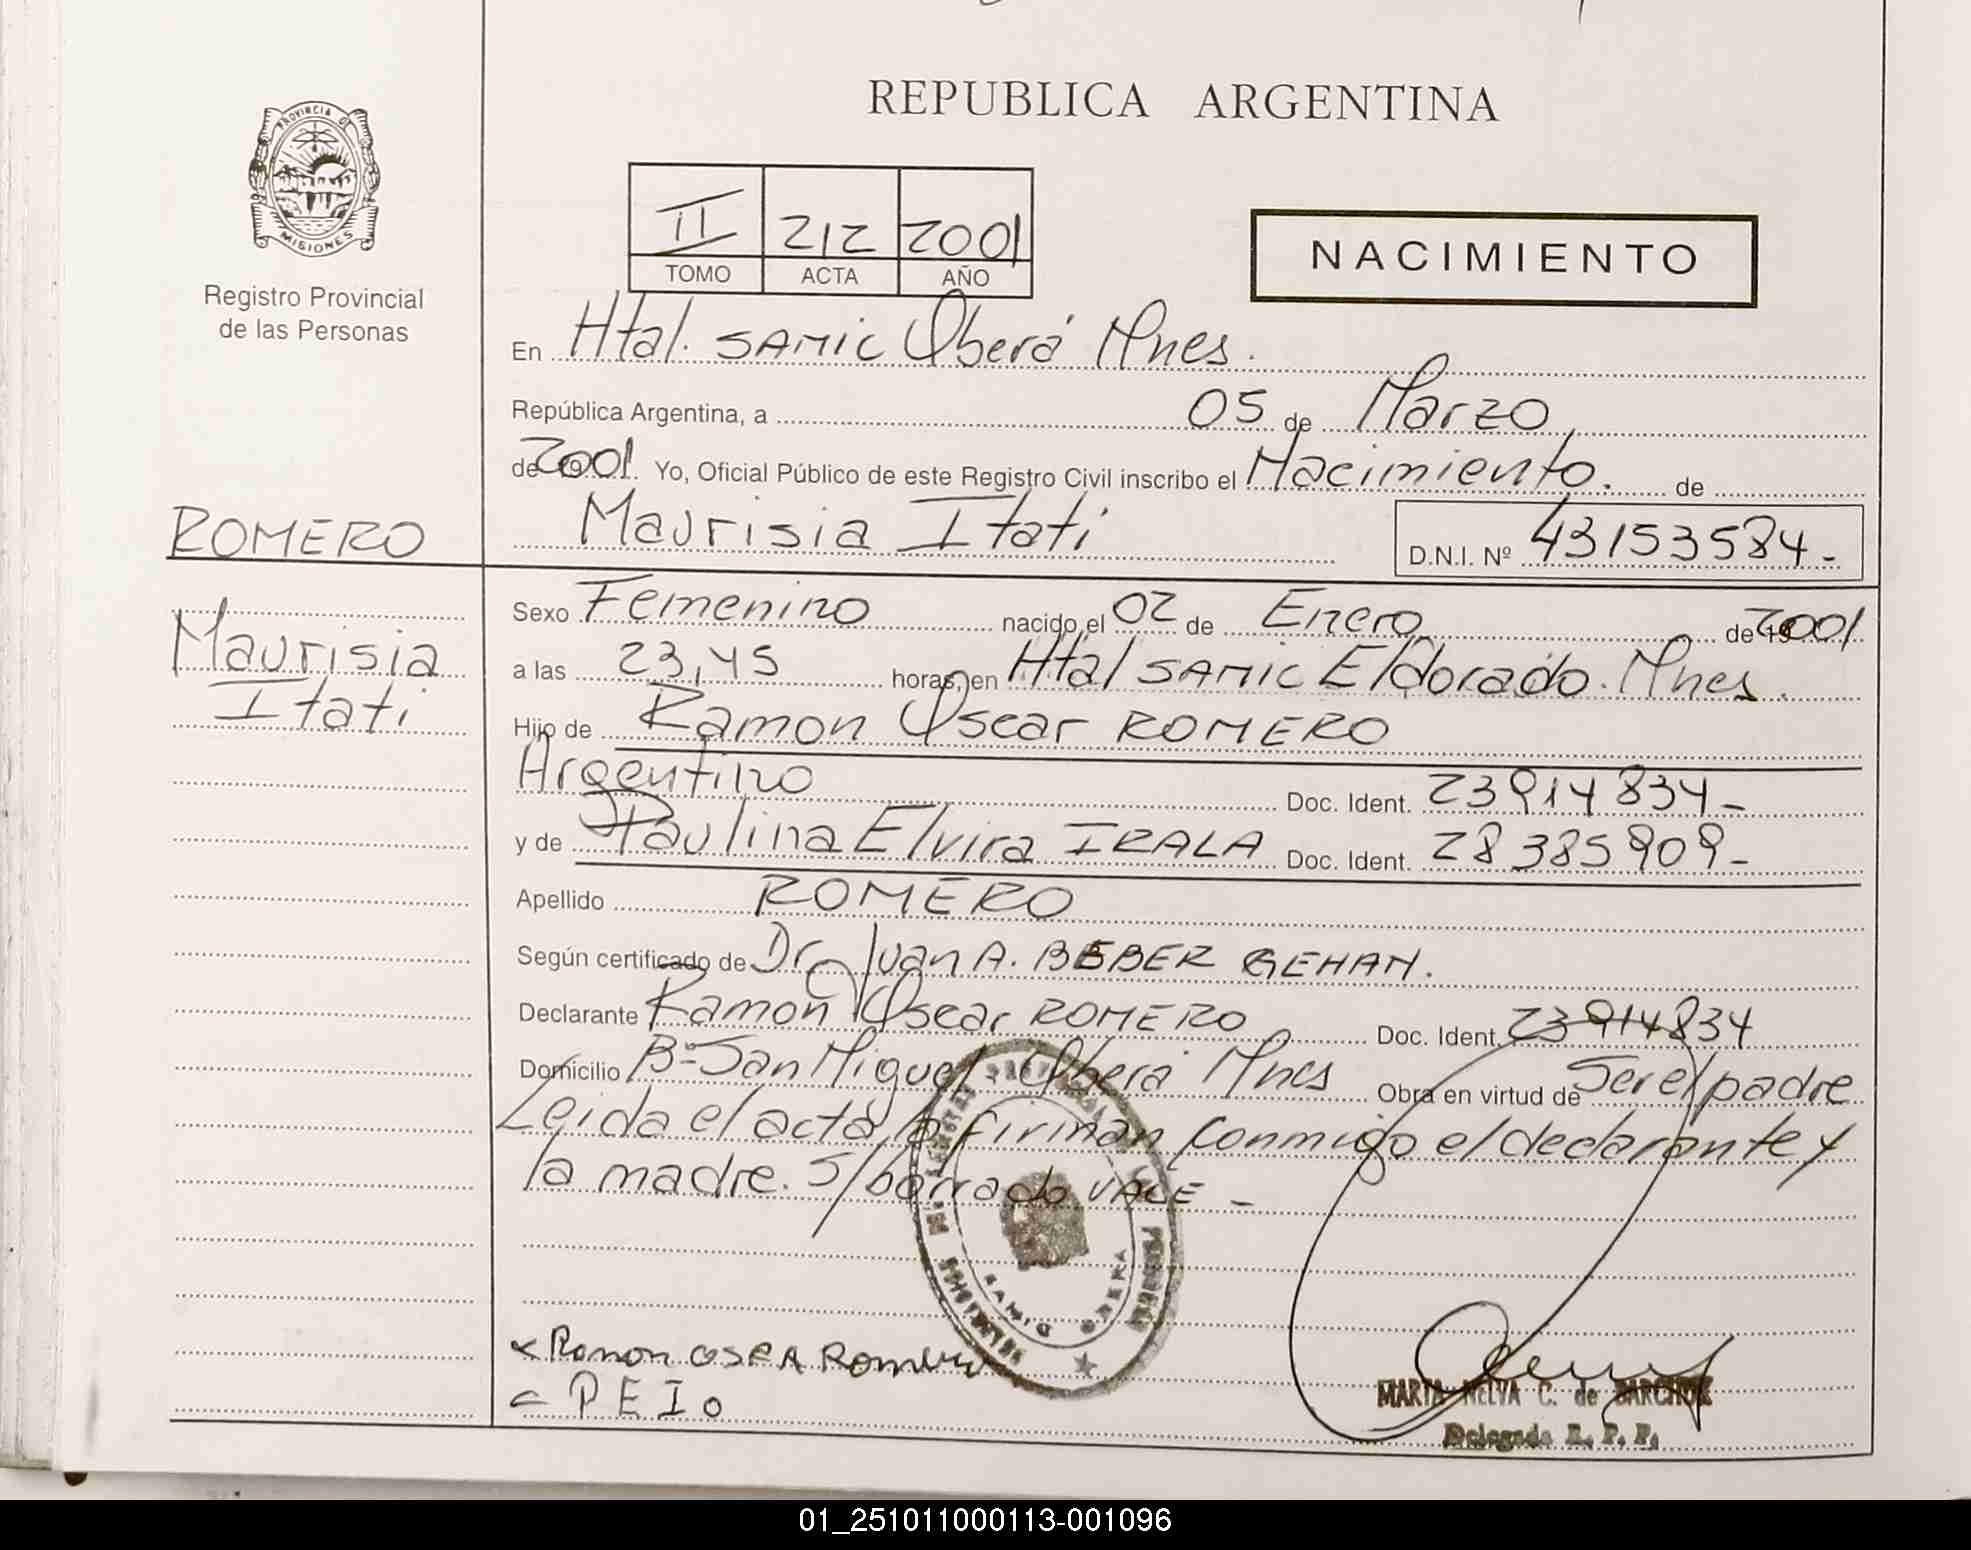 REPUBLICA ARGENTINA
PROVINCIA DE
MISIONES
Registro Provincial
de las Personas
II 212 2001
TOMO ACTA AÑO
NACIMIENTO
En Htal. SAMIC Oberá Mnes.
República Argentina, a 05 de Marzo
de 2001. Yo, Oficial Público de este Registro Civil inscribo el Nacimiento. de
ROMERO
Maurisia Itati D.N.I. Nº 43153584-
Maurisia
Itati
Sexo Femenino nacido el 02 de Enero de 2001
a las 23,45 horas, en Htal SAMIC Eldorado. Mnes.
Hijo de Ramon Oscar ROMERO
Argentino Doc. Ident. 23914834-
y de Paulina Elvira IRALA Doc. Ident. 28385909-
Apellido ROMERO
Según certificado de Dr. Juan A. BEBER GEHAN.
Declarante Ramon Oscar ROMERO Doc. Ident. 23914834
Domicilio Bº San Miguel. Oberá Mnes Obra en virtud de Ser el padre
Leida el acta, la firman conmigo el declarante y
la madre. S/borrado VALE -
SAMIC OBERA
Ramon OSRA Romero
PEIO
MARTA NELVA C. de
Delegada R. P. P.
01_251011000113-001096